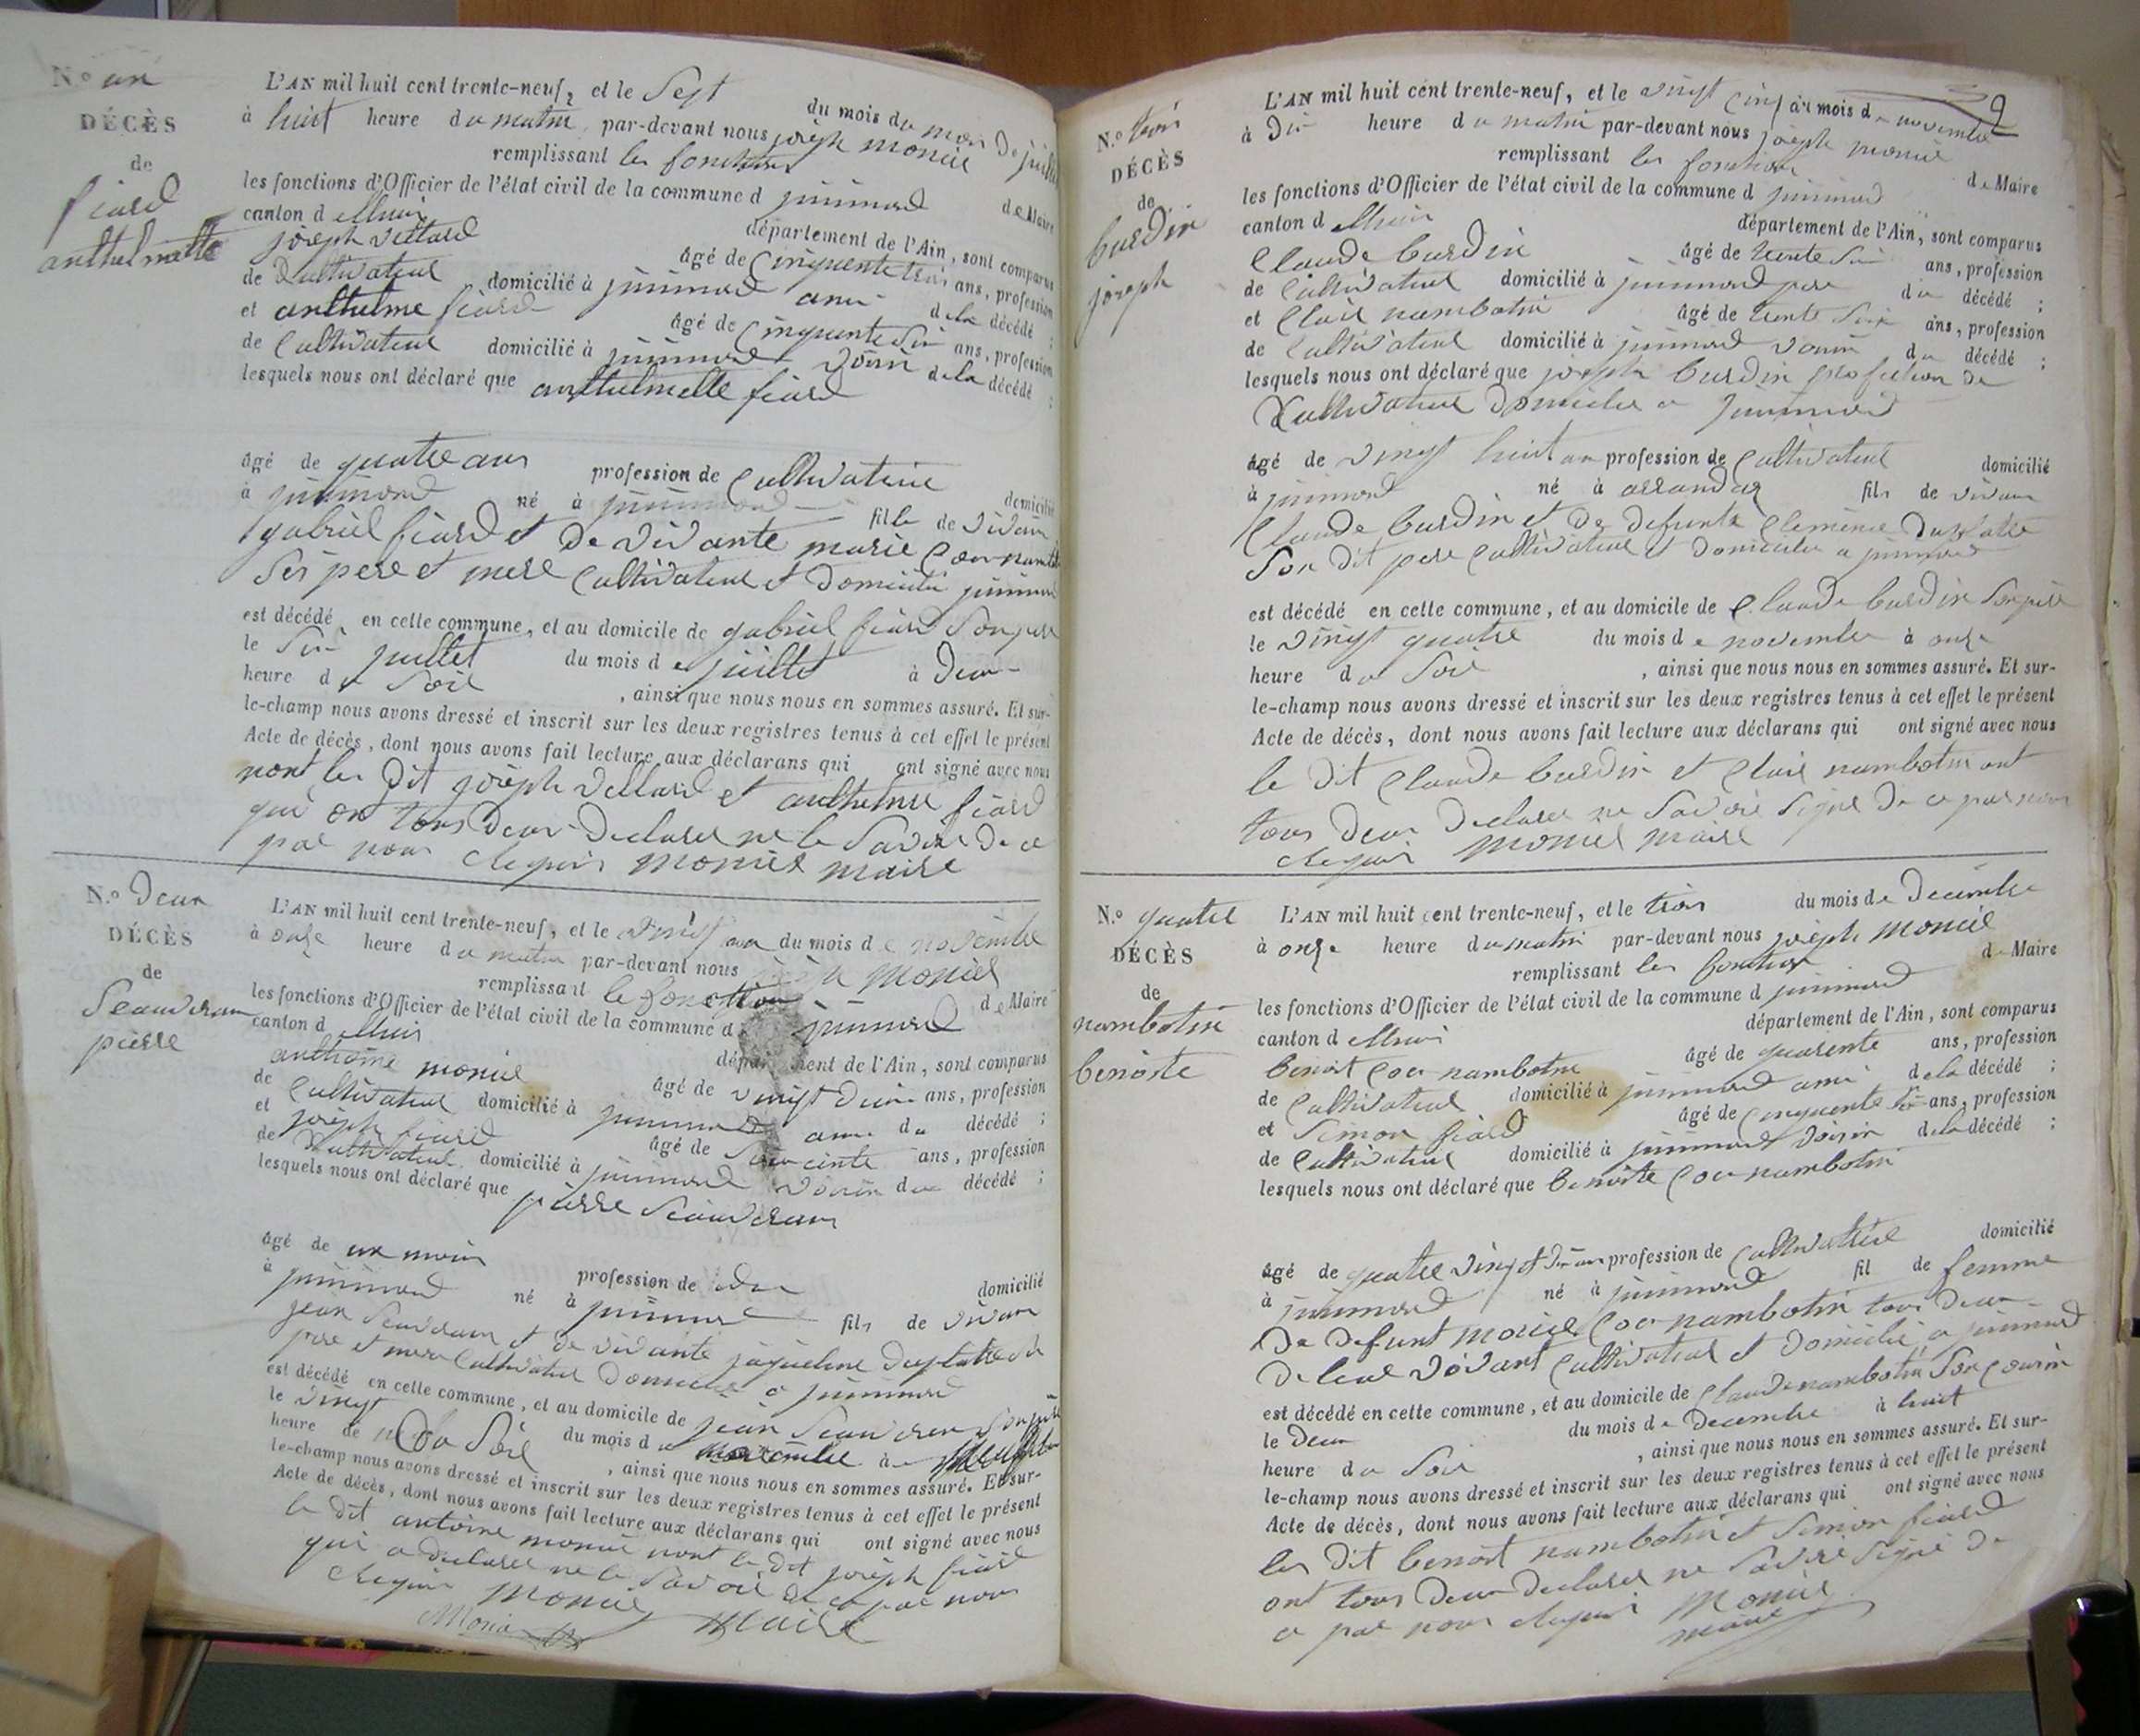 N.o un
DÉCÈS
de
fiard
anthelmette
L'AN mil huit cent trente-neuf, et le Sept du mois du mois de juillet
à huit heure du matin, par-devant nous joseph monier
remplissant les fonctions de Maire
les fonctions d'Officier de l'état civil de la commune d jujurieux
canton d lhuis département de l'Ain, sont comparus
joseph vellard âgé de Cinquente trois ans, profession
de Cultivateur domicilié à ami de la décédé ;
et anthelme fiard âgé de Cinquente Six ans, profession
de Cultivateur domicilié à voisin de la décédé ;
lesquels nous ont déclaré que anthelmette fiard
âgé de quatre ans profession de Cultivatrice domicilié
à né à fille de vivant
gabriel fiard et de vivante marie Cour
Ses pere et mere Cultivateur et domicilié
est décédé en cette commune, et au domicile de gabriel fiard Son pere
le Six juillet du mois de juillet à Deux
heure du Soir , ainsi que nous nous en sommes assuré. Et sur-
le-champ nous avons dressé et inscrit sur les deux registres tenus à cet effet le présent
Acte de décès, dont nous avons fait lecture aux déclarans qui ont signé avec nous
nont les dit joseph vellard et anthelme fiard
qui ont tous Deux Declarer ne le Savoir De ce
par nous monier maire
N.o Deux
DÉCÈS
de
pierre
L'AN mil huit cent trente-neuf, et le vingt un du mois de novembre
à onze heure du matin par-devant nous joseph monier
remplissant le fonction de Maire
les fonctions d'Officier de l'état civil de la commune d
canton d lhuis département de l'Ain, sont comparus
anthoine monier âgé de vingt Deux ans, profession
de Cultivateur domicilié à ami du décédé ;
et joseph fiard âgé de Soixante ans, profession
de Cultivateur domicilié à voisin du décédé ;
lesquels nous ont déclaré que pierre
âgé de un mois profession de domicilié
à né à fils de vivant
jean et de vivante jaqueline Duplatre
pere et mere Cultivateur Domicilié a
est décédé en cette commune, et au domicile de jean Son pere
le vingt du mois de novembre à
heure de Du Soir , ainsi que nous nous en sommes assuré. Et sur-
le-champ nous avons dressé et inscrit sur les deux registres tenus à cet effet le présent
Acte de décès, dont nous avons fait lecture aux déclarans qui ont signé avec nous
le dit antoine monier nont le dit joseph fiard
qui a declarer ne le Savoir De ce par nous
monier maire
Monier
2
N.o trois
DÉCÈS
de
burdin
joseph
L'AN mil huit cent trente-neuf, et le vingt Cinq du mois de novembre
à Dix heure du matin par-devant nous joseph monier
remplissant les fonctions de Maire
les fonctions d'Officier de l'état civil de la commune d
canton d lhuis département de l'Ain, sont comparus
Claude burdin âgé de Six ans, profession
de Cultivateur domicilié à pere du décédé ;
et Clair nambotin âgé de trente Six ans, profession
de Cultivateur domicilié à voisin du décédé ;
lesquels nous ont déclaré que joseph burdin profession de
Cultivateur Domicilié a
âgé de vingt huit an profession de Cultivateur domicilié
à né à arrandas fils de vivant
Claude burdin et de defunte Clemence Duplatre
Son dit pere Cultivateur et Domicilié a
est décédé en cette commune, et au domicile de Claude burdin Son pere
le vingt quatre du mois de novembre à onze
heure du Soir , ainsi que nous nous en sommes assuré. Et sur-
le-champ nous avons dressé et inscrit sur les deux registres tenus à cet effet le présent
Acte de décès, dont nous avons fait lecture aux déclarans qui ont signé avec nous
le dit Claude burdin et Clair nambotin ont
tous Deux Declarer ne Savoir Signer De ce par nous
monier maire
N.o quatre
DÉCÈS
de
nambotin
benoite
L'AN mil huit cent trente-neuf, et le trois du mois de Decembre
à onze heure du matin par-devant nous joseph monier
remplissant les fonction de Maire
les fonctions d'Officier de l'état civil de la commune d
canton d lhuis département de l'Ain, sont comparus
benoit Cou nambotin âgé de quarente ans, profession
de Cultivateur domicilié à ami de la décédé ;
et Simon fiard âgé de Cinquente Six ans, profession
de Cultivateur domicilié à voisin de la décédé ;
lesquels nous ont déclaré que benoite Cou nambotin
âgé de quatre vingt profession de Cultivatrice domicilié
à né à fil de femme
De defunt Cou nambotin tous Deux
De leur vivant Cultivateur et Domicilié a
est décédé en cette commune, et au domicile de Claude nambotin Son Cousin
le Deux du mois de Decembre à huit
heure du Soir , ainsi que nous nous en sommes assuré. Et sur-
le-champ nous avons dressé et inscrit sur les deux registres tenus à cet effet le présent
Acte de décès, dont nous avons fait lecture aux déclarans qui ont signé avec nous
les dit benoit nambotin et Simon fiard
ont tous Deux Declarer ne Savoir Signé De
ce par nous monier
maire